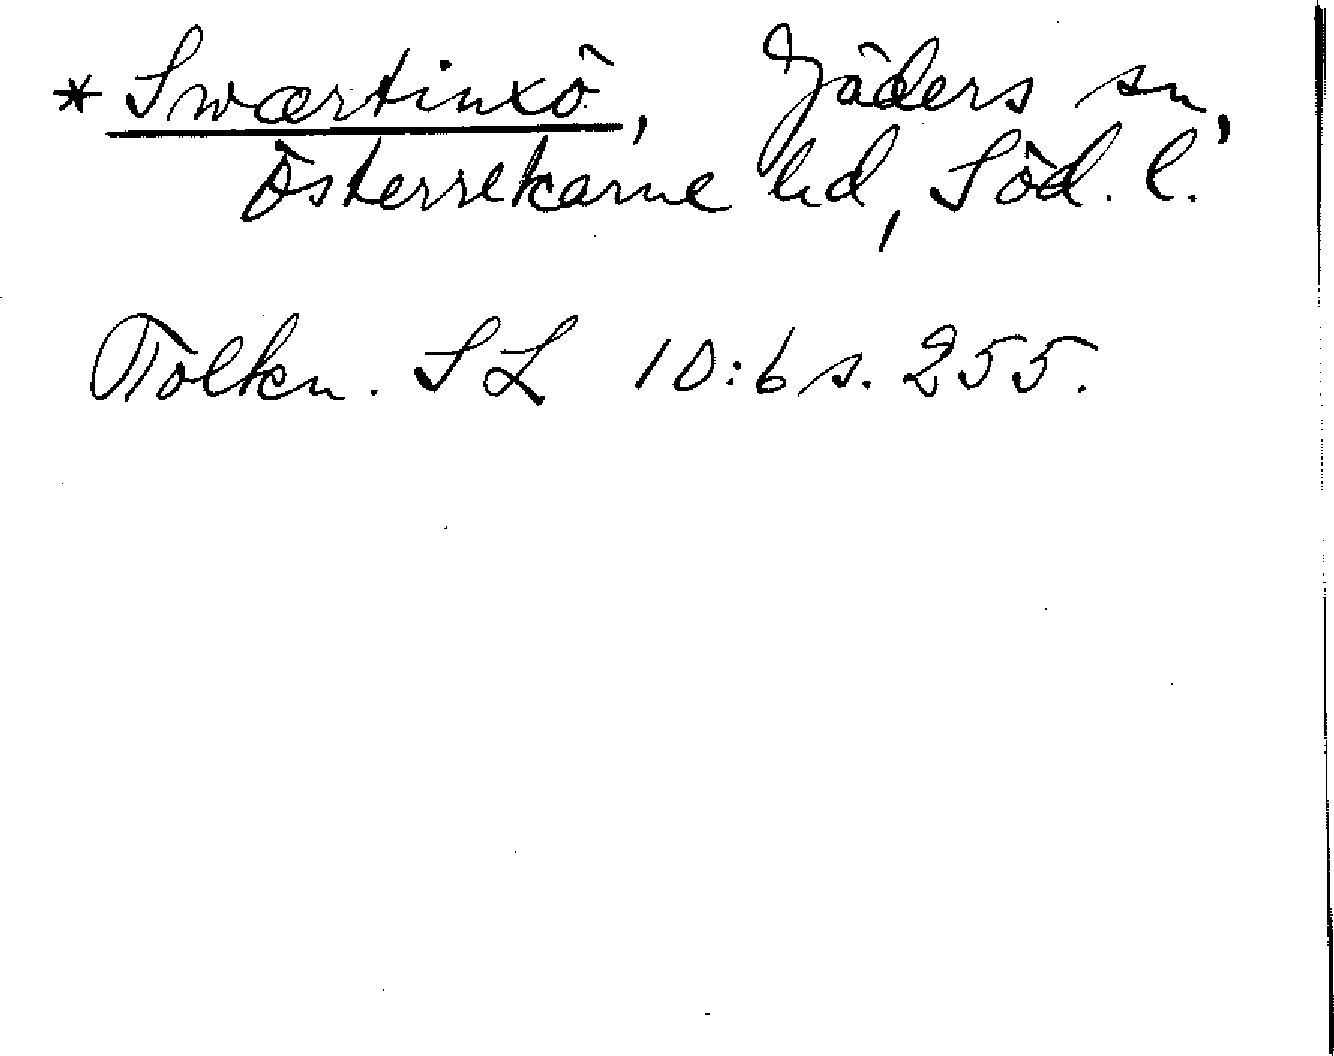 * Swærtinxö, Jäders sn,
Österrekarne hd, Söd. l.
Tolkn. SL 10:6 s. 255.